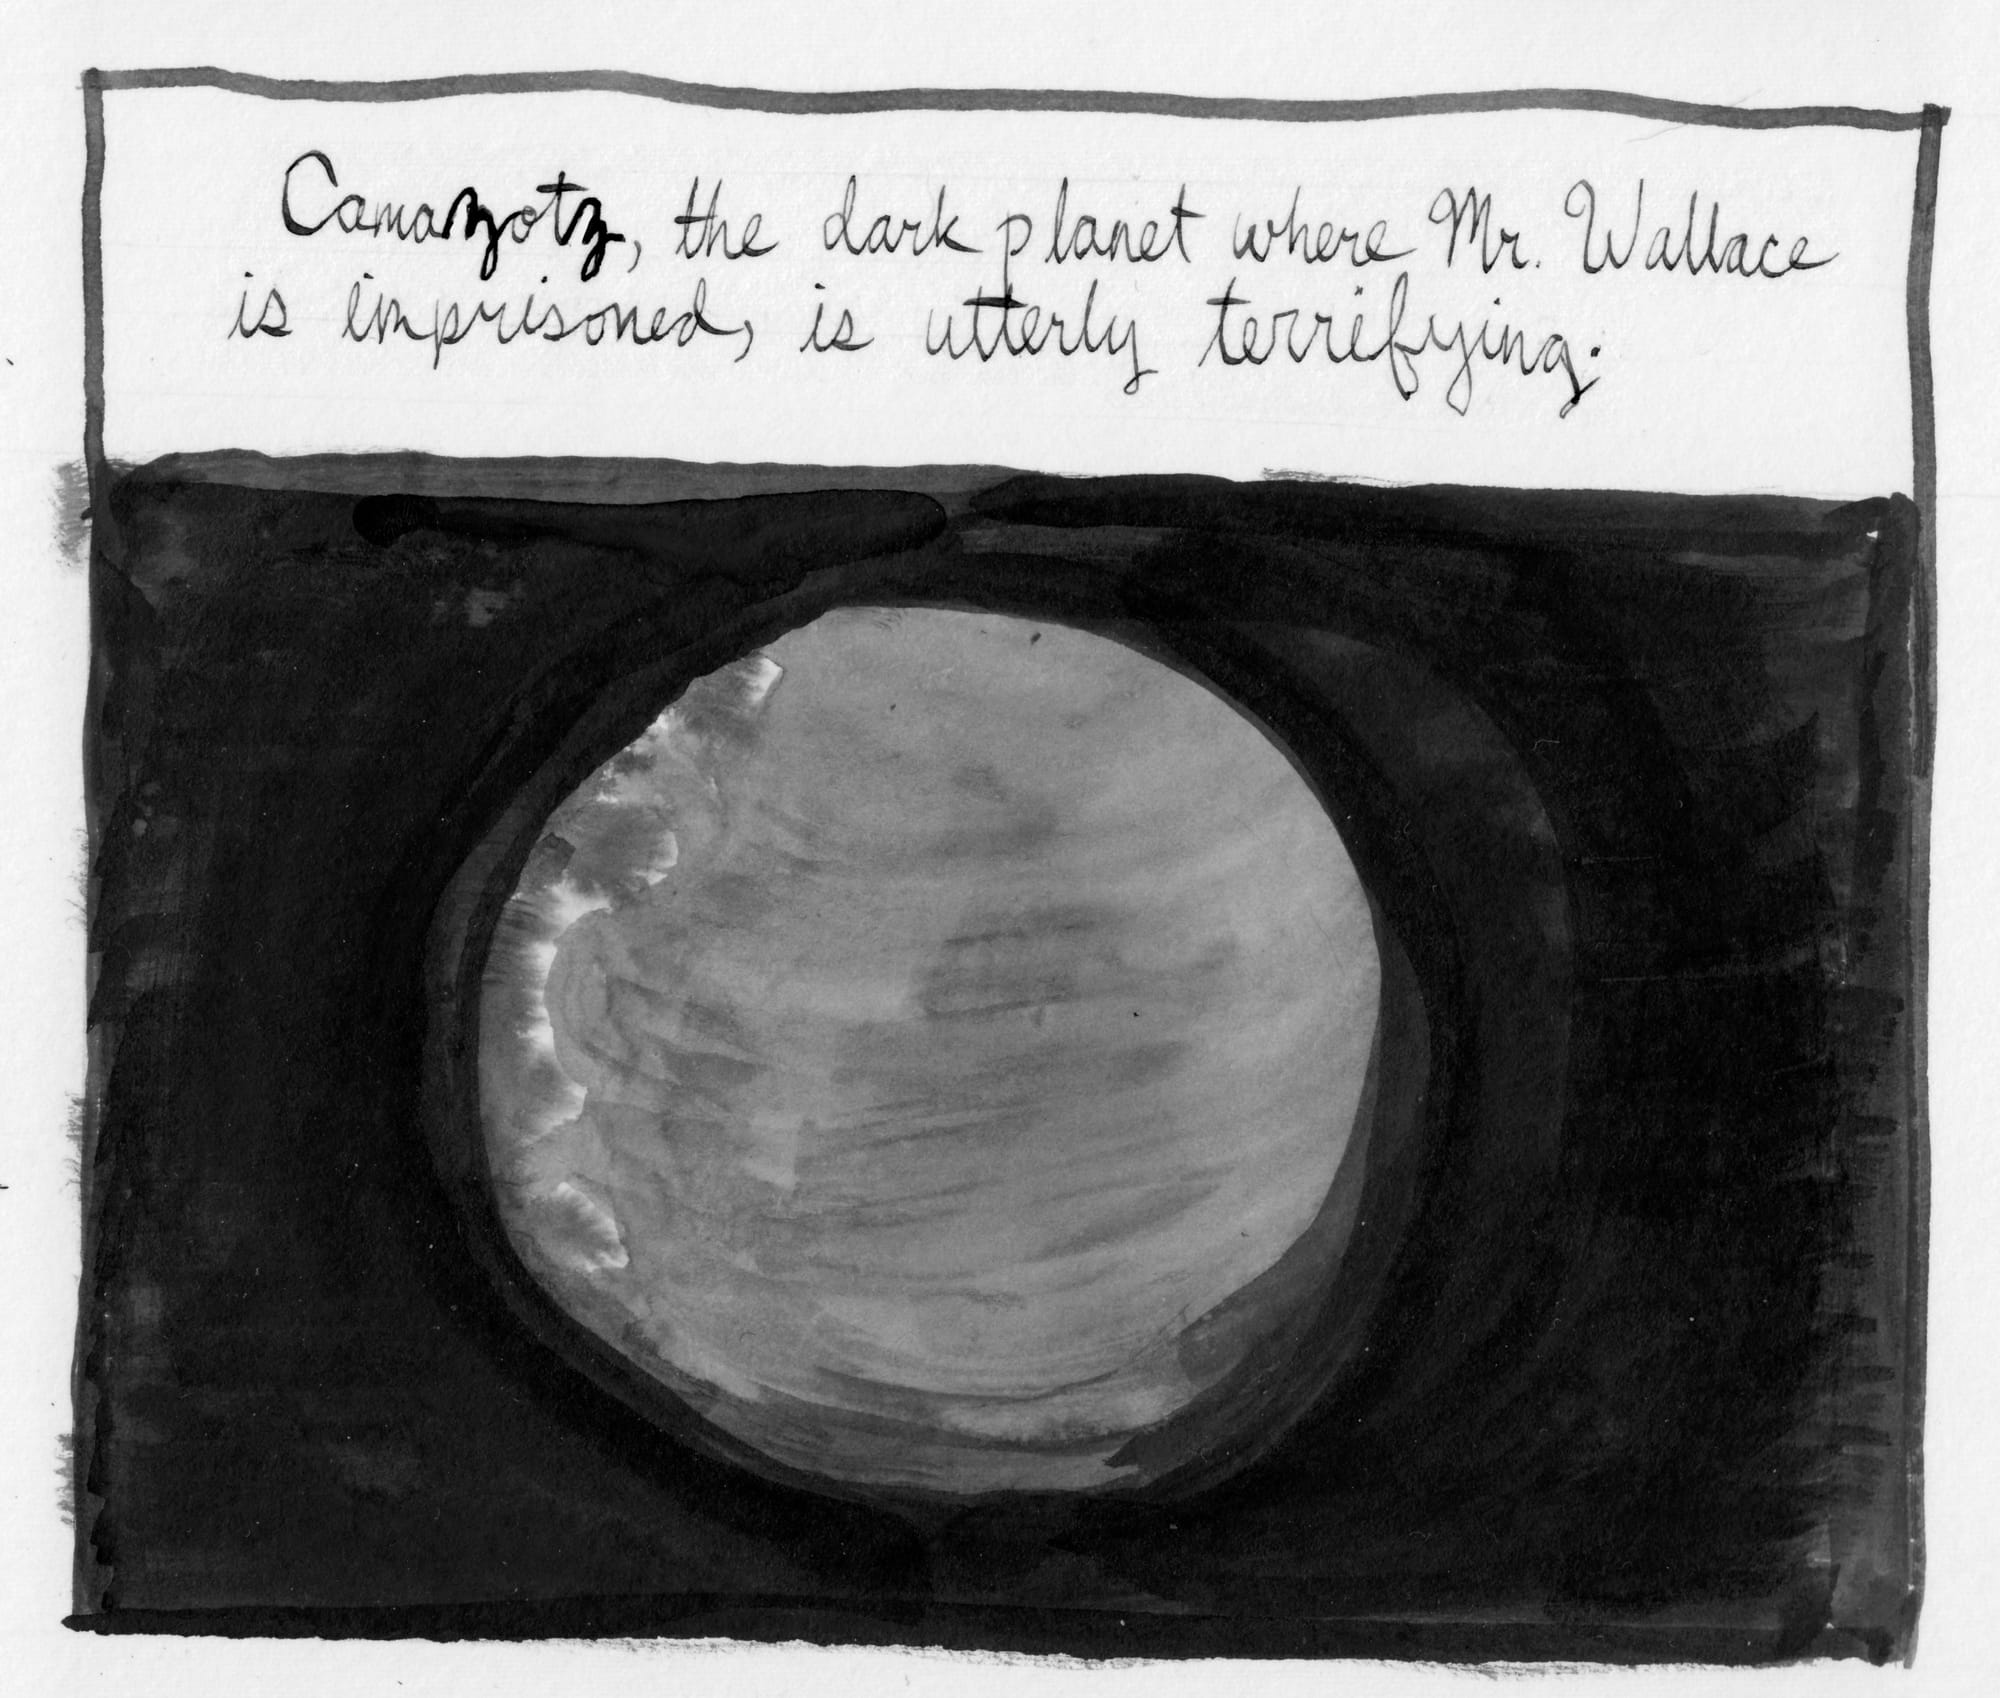 Camazotz, the dark planet where Mr. Wallace
is imprisoned, is utterly terrifying.